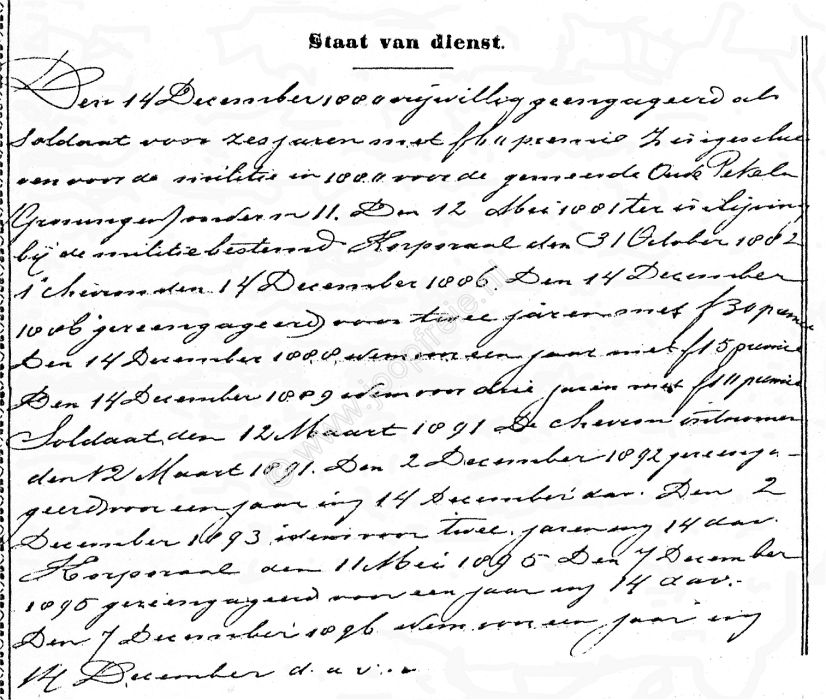 Staat van dienst.
Den 14 December 1880 vrijwillig geengageerd als
Soldaat voor zes jaren met premie Ingeschre
ven voor de militie in 1880 voor de gemeente Oude Pekela
(Groningen) onder n 11. Den 12 Mei 1881 ter inlijving
bij de militie bestemd Korporaal den 31 October 1882
1e chevron den 14 December 1886. Den 14 December
1886 gereengageerd voor twee jaren met f 30 premie
Den 14 December 1888 idem voor een jaar met f 15 premie
Den 14 December 1889 idem voor drie jaren met premie
Soldaat den 12 Maart 1891 De chevron ontnomen
den 12 Maart 1891. Den 2 December 1892 gereenga-
geerd voor een jaar ing 14 December dav. Den 2
December 1893 idem voor twee jaren ing 14 dav.
Korporaal den 11 Mei 1895 Den 7 December
1895 gereengageerd voor een jaar ing 14 dav.
Den 7 December 1896 idem voor een jaar ing
14 December d.a.v..
© www.joopfroje.nl